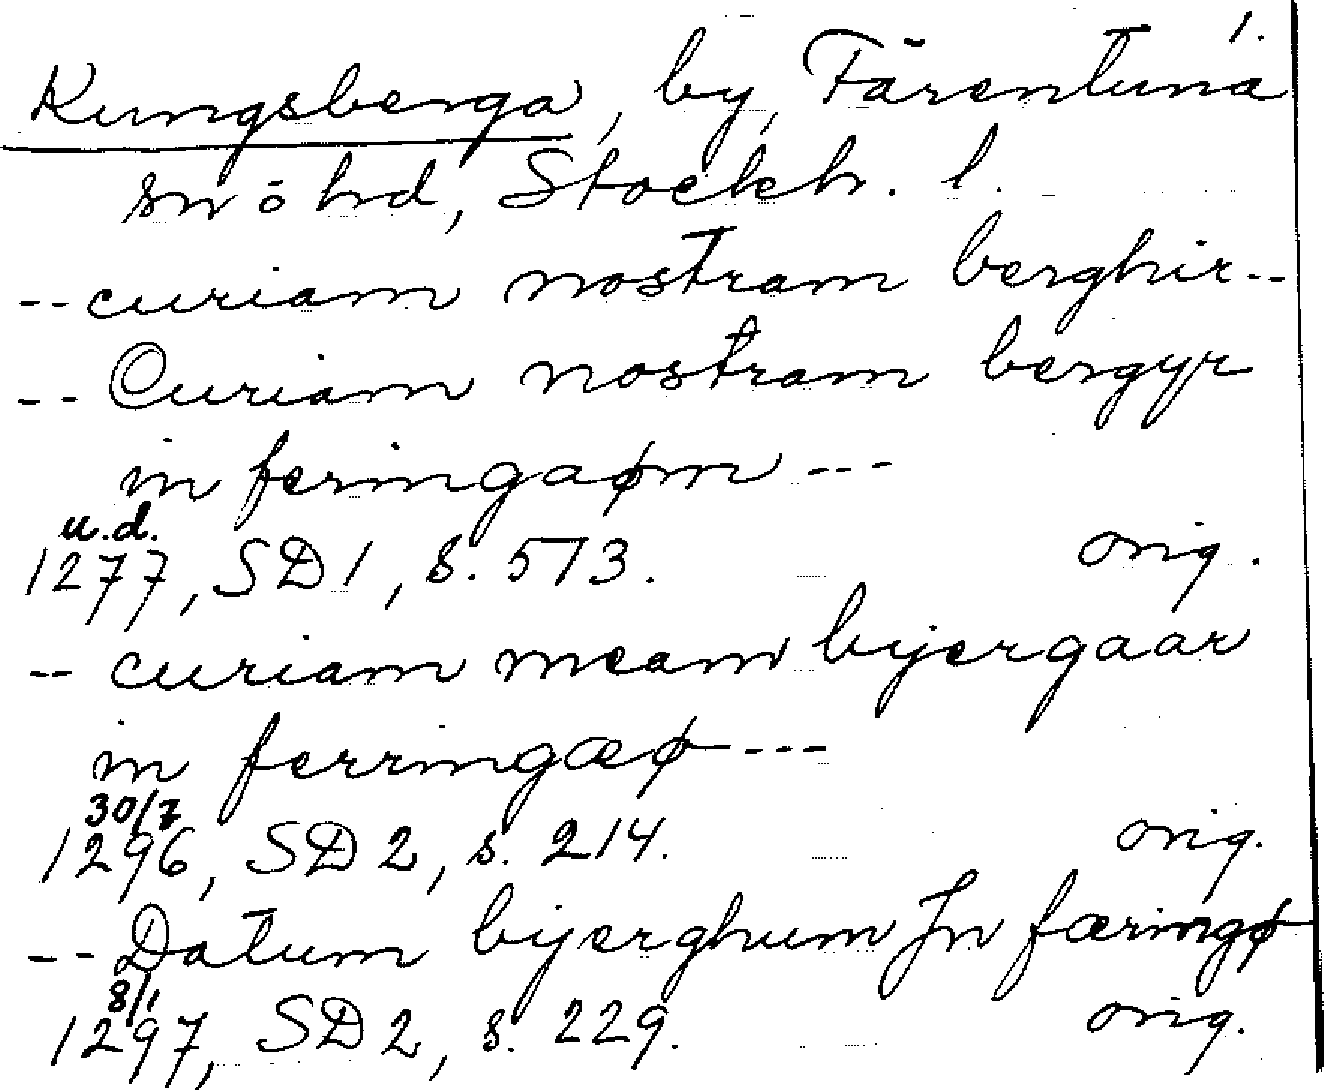 1.
Kungsberga, by, Färentuna
sn o hd, Stockh. l.
-- curiam nostram berghir --
-- Curiam nostram bergyr
in feringaøm ---
u.d.
1277, SD 1, s. 573. orig.
-- curiam meam bijergaar
in ferringæø ---
30/7
1296, SD 2, s. 214. orig.
-- Datum bijerghum Jn færingø
8/1
1297, SD 2, s. 229. orig.